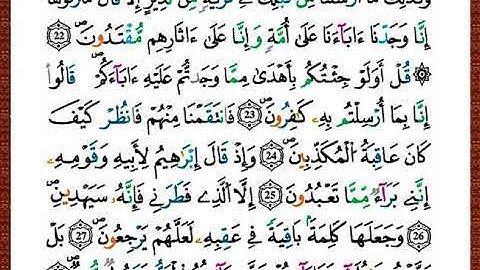 وَكَذَٰلِكَ مَا أَرْسَلْنَا مِن قَبْلِكَ فِي قَرْيَةٍ مِّن نَّذِيرٍ إِلَّا قَالَ مُتْرَفُوهَا
إِنَّا وَجَدْنَا ءَابَآءَنَا عَلَىٰ أُمَّةٍ وَإِنَّا عَلَىٰ ءَاثَٰرِهِم مُّقْتَدُونَۖ 22
۞ قُلْ أَوَلَوْ جِئْتُكُم بِأَهْدَىٰ مِمَّا وَجَدتُّمْ عَلَيْهِ ءَابَآءَكُمْۖ قَالُوٓا۟
إِنَّا بِمَآ أُرْسِلْتُم بِهِۦ كَٰفِرُونَۖ 23 فَانتَقَمْنَا مِنْهُمْ فَانظُرْ كَيْفَ
كَانَ عَٰقِبَةُ الْمُكَذِّبِينَۖ 24 وَإِذْ قَالَ إِبْرَٰهِيمُ لِأَبِيهِ وَقَوْمِهِۦٓ
إِنَّنِي بَرَآءٌ مِّمَّا تَعْبُدُونَ 25 إِلَّا الَّذِي فَطَرَنِي فَإِنَّهُۥ سَيَهْدِينِۖ
26 وَجَعَلَهَا كَلِمَةً بَاقِيَةً فِي عَقِبِهِۦ لَعَلَّهُمْ يَرْجِعُونَۖ 27 بَلْ